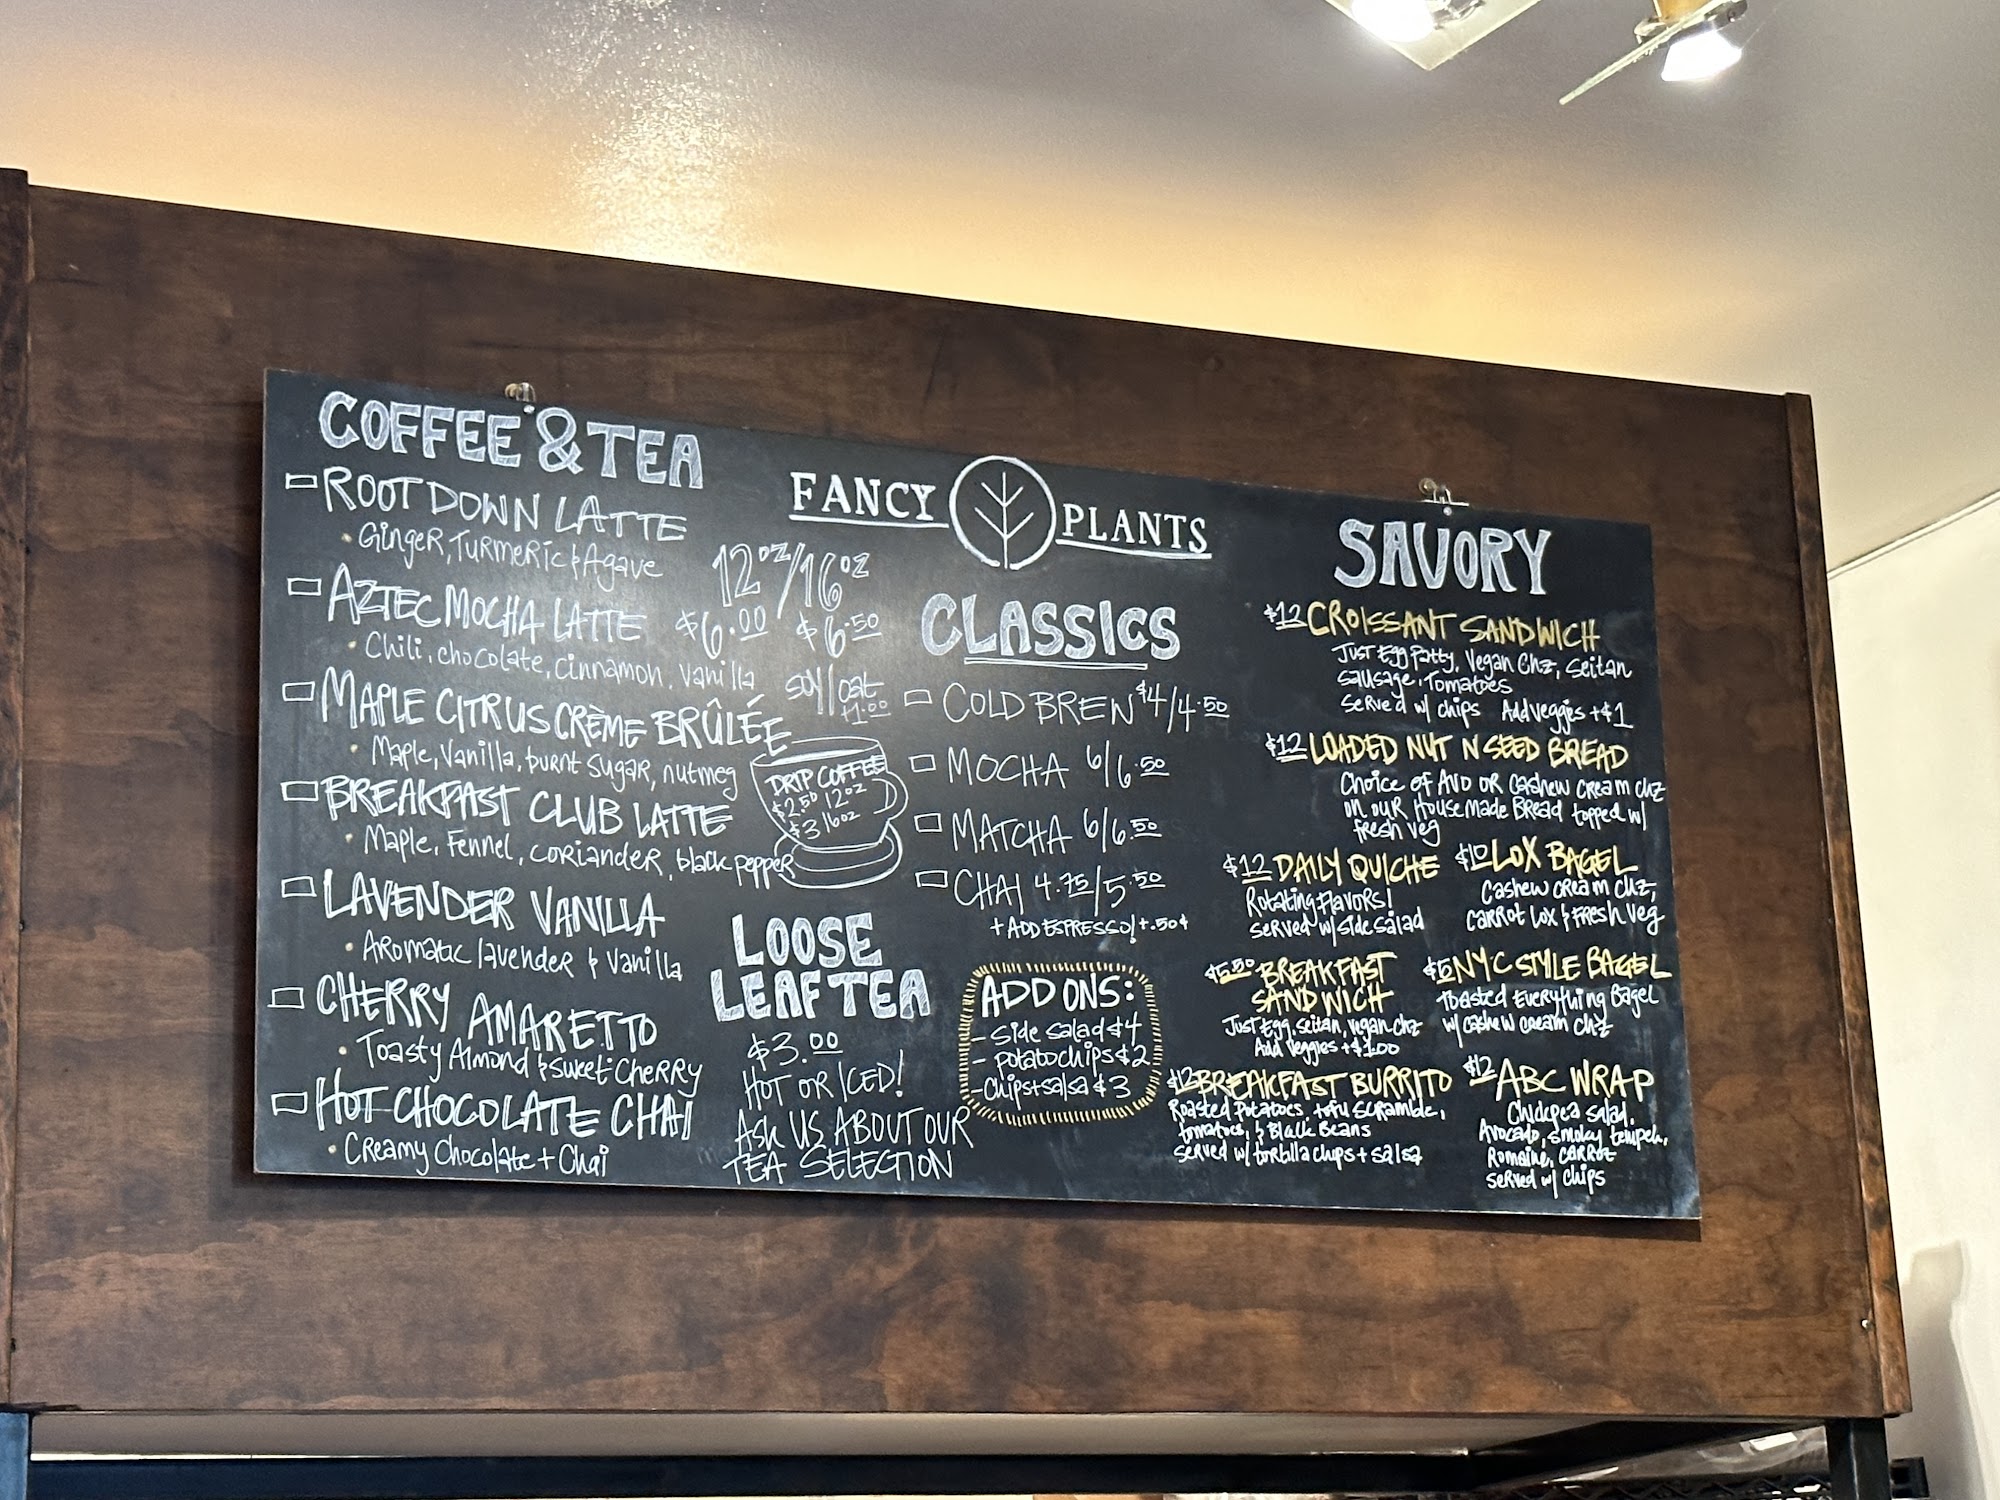 COFFEE & TEA
ROOT DOWN LATTE
• Ginger, Turmeric & Agave
AZTEC MOCHA LATTE
• Chili, chocolate, cinnamon, vanilla
MAPLE CITRUS CRÈME BRÛLÉE
• Maple, Vanilla, burnt sugar, nutmeg
BREAKFAST CLUB LATTE
• Maple, Fennel, coriander, black pepper
LAVENDER VANILLA
• Aromatic lavender & Vanilla
CHERRY AMARETTO
• Toasty Almond & Sweet Cherry
HOT CHOCOLATE CHAI
• Creamy Chocolate + Chai
12oz/16oz
$6.00 $6.50
soy/oat
+1.00
DRIP COFFEE
$2.50 12oz
$3 16oz
LOOSE
LEAF TEA
$3.00
HOT OR ICED!
ASK US ABOUT OUR
TEA SELECTION
FANCY PLANTS
CLASSICS
COLD BREW $4/4.50
MOCHA 6/6.50
MATCHA 6/6.50
CHAI 4.75/5.50
+ ADD ESPRESSO! +.50¢
ADD ONS:
- side salad $4
- potato chips $2
- chips+salsa $3
SAVORY
$12 CROISSANT SANDWICH
Just Egg patty, Vegan Chz, Seitan
sausage, Tomatoes
served w/ chips Add veggies +$1
$12 LOADED NUT N SEED BREAD
Choice of AVO OR Cashew cream chz
on our House made Bread topped w/
fresh veg
$12 DAILY QUICHE
Rotating flavors!
served w/ side salad
$10 LOX BAGEL
Cashew cream chz,
carrot lox & fresh veg
$5.50 BREAKFAST
SANDWICH
Just Egg, seitan, vegan chz
Add veggies +$1.00
$5 NYC STYLE BAGEL
Toasted Everything Bagel
w/ cashew cream chz
$12 BREAKFAST BURRITO
Roasted potatoes, tofu scramble,
tomatoes, & Black Beans
served w/ tortilla chips + salsa
$12 ABC WRAP
Chickpea salad,
Avocado, smoky tempeh,
Romaine, carrot
served w/ chips